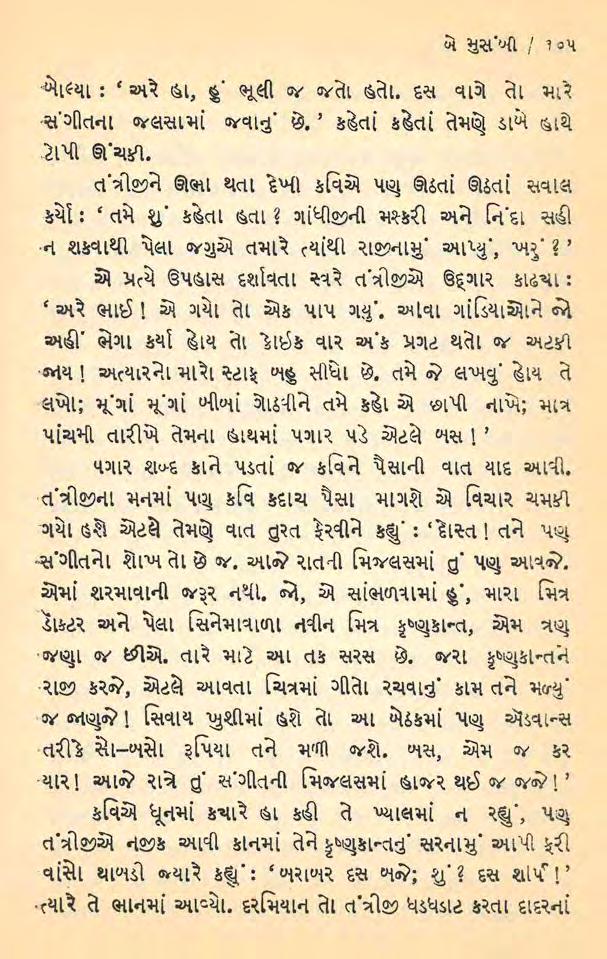 બે મુસંબી / ૧૦૫
બોલ્યા : ‘ અરે હા, હું ભૂલી જ જતો હતો. દસ વાગે તો મારે
સંગીતના જલસામાં જવાનું છે. ’ કહેતાં કહેતાં તેમણે ડાબે હાથે
ટોપી ઊંચકી.
તંત્રીજીને ઊભા થતા દેખી કવિએ પણ ઊઠતાં ઊઠતાં સવાલ
કર્યો : ‘ તમે શું કહેતા હતા ? ગાંધીજીની મશ્કરી અને નિંદા સહી
ન શકવાથી પેલા જગુએ તમારે ત્યાંથી રાજીનામું આપ્યું, ખરું ? ’
એ પ્રત્યે ઉપહાસ દર્શાવતા સ્વરે તંત્રીજીએ ઉદ્ગાર કાઢ્યા :
‘ અરે ભાઈ ! એ ગયો તો એક પાપ ગયું. આવા ગાંડિયાઓને જો
અહીં ભેગા કર્યા હોય તો કોઈક વાર અંક પ્રગટ થતો જ અટકી
જાય ! અત્યારનો મારો સ્ટાફ બહુ સીધો છે. તમે જે લખવું હોય તે
લખો; મૂંગાં મૂંગાં બીબાં ગોઠવીને તમે કહો એ છાપી નાખે; માત્ર
પાંચમી તારીખે તેમના હાથમાં પગાર પડે એટલે બસ ! ’
પગાર શબ્દ કાને પડતાં જ કવિને પૈસાની વાત યાદ આવી.
તંત્રીજીના મનમાં પણ કવિ કદાચ પૈસા માગશે એ વિચાર ચમકી
ગયો હશે એટલે તેમણે વાત તુરત ફેરવીને કહ્યું : ‘ દોસ્ત ! તને પણ
સંગીતનો શોખ તો છે જ. આજે રાતની મિજલસમાં તું પણ આવજે.
એમાં શરમાવાની જરૂર નથી. જો, એ સાંભળવામાં હું, મારા મિત્ર
ડૉક્ટર અને પેલા સિનેમાવાળા નવીન મિત્ર કૃષ્ણુકાન્ત, એમ ત્રણ
જણા જ છીએ. તારે માટે આ તક સરસ છે. જરા કૃષ્ણુકાન્તને
રાજી કરજે, એટલે આવતા ચિત્રમાં ગીતો રચવાનું કામ તને મળ્યું
જ જાણજે ! સિવાય ખુશીમાં હશે તો આ બેઠકમાં પણ ઍડવાન્સ
તરીકે સો–બસો રૂપિયા તને મળી જશે. બસ, એમ જ કર
યાર ! આજે રાત્રે તું સંગીતની મિજલસમાં હાજર થઈ જ જજે ! ’
કવિએ ધૂનમાં ક્યારે હા કહી તે ખ્યાલમાં ન રહ્યું, પણ
તંત્રીજીએ નજીક આવી કાનમાં તેને કૃષ્ણુકાન્તનું સરનામું આપી ફરી
વાંસો થાબડી જ્યારે કહ્યું : ‘ બરાબર દસ બજે; શું ? દસ શાર્પ ! ’
ત્યારે તે ભાનમાં આવ્યો. દરમિયાન તો તંત્રીજી ધડધડાટ કરતા દાદરનાં